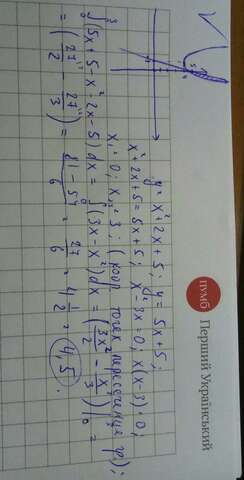 y = x² + 2x + 5; y = 5x + 5;
x² + 2x + 5 = 5x + 5; x² - 3x = 0; x(x - 3) = 0;
x₁ = 0; x₂ = 3; (коорд. точек пересечения гр.);
∫₀³ (5x + 5 - x² - 2x - 5) dx = ∫₀³ (3x - x²) dx = (3x²/2 - x³/3) |₀³ =
= (27/2 - 27/3) = (81 - 54)/6 = 27/6 = 4 1/2 = 4,5.
пумб Перший Український